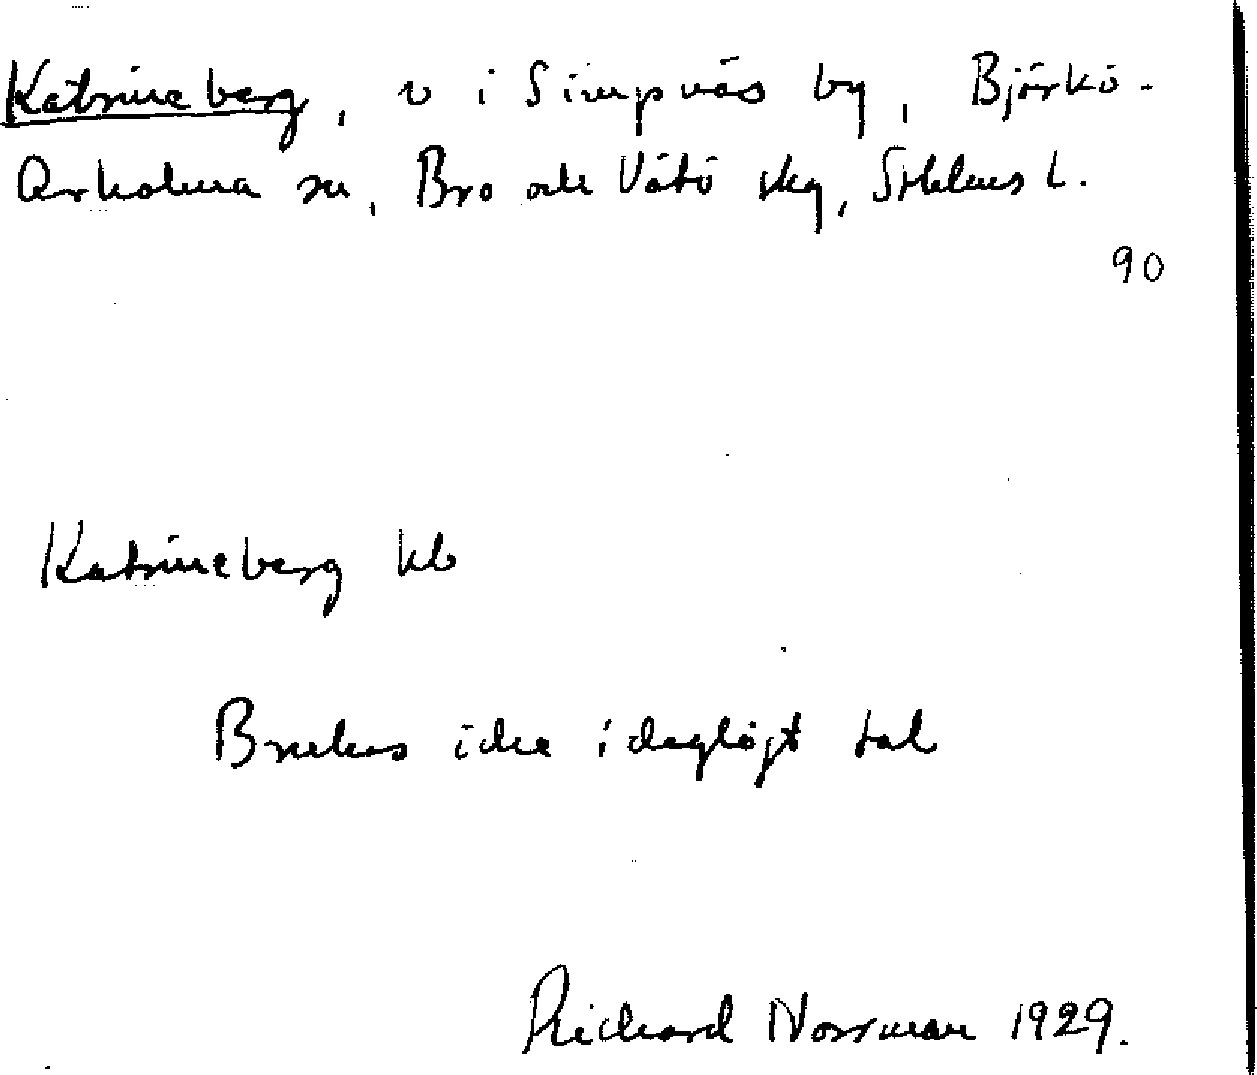 Katrineberg, v i Simpnäs by, Björkö-
Arholma sn, Bro och Vätö skg, Sthlms l.
90
Katrineberg kb
Brukas icke i dagligt tal
Richard Norrman 1929.